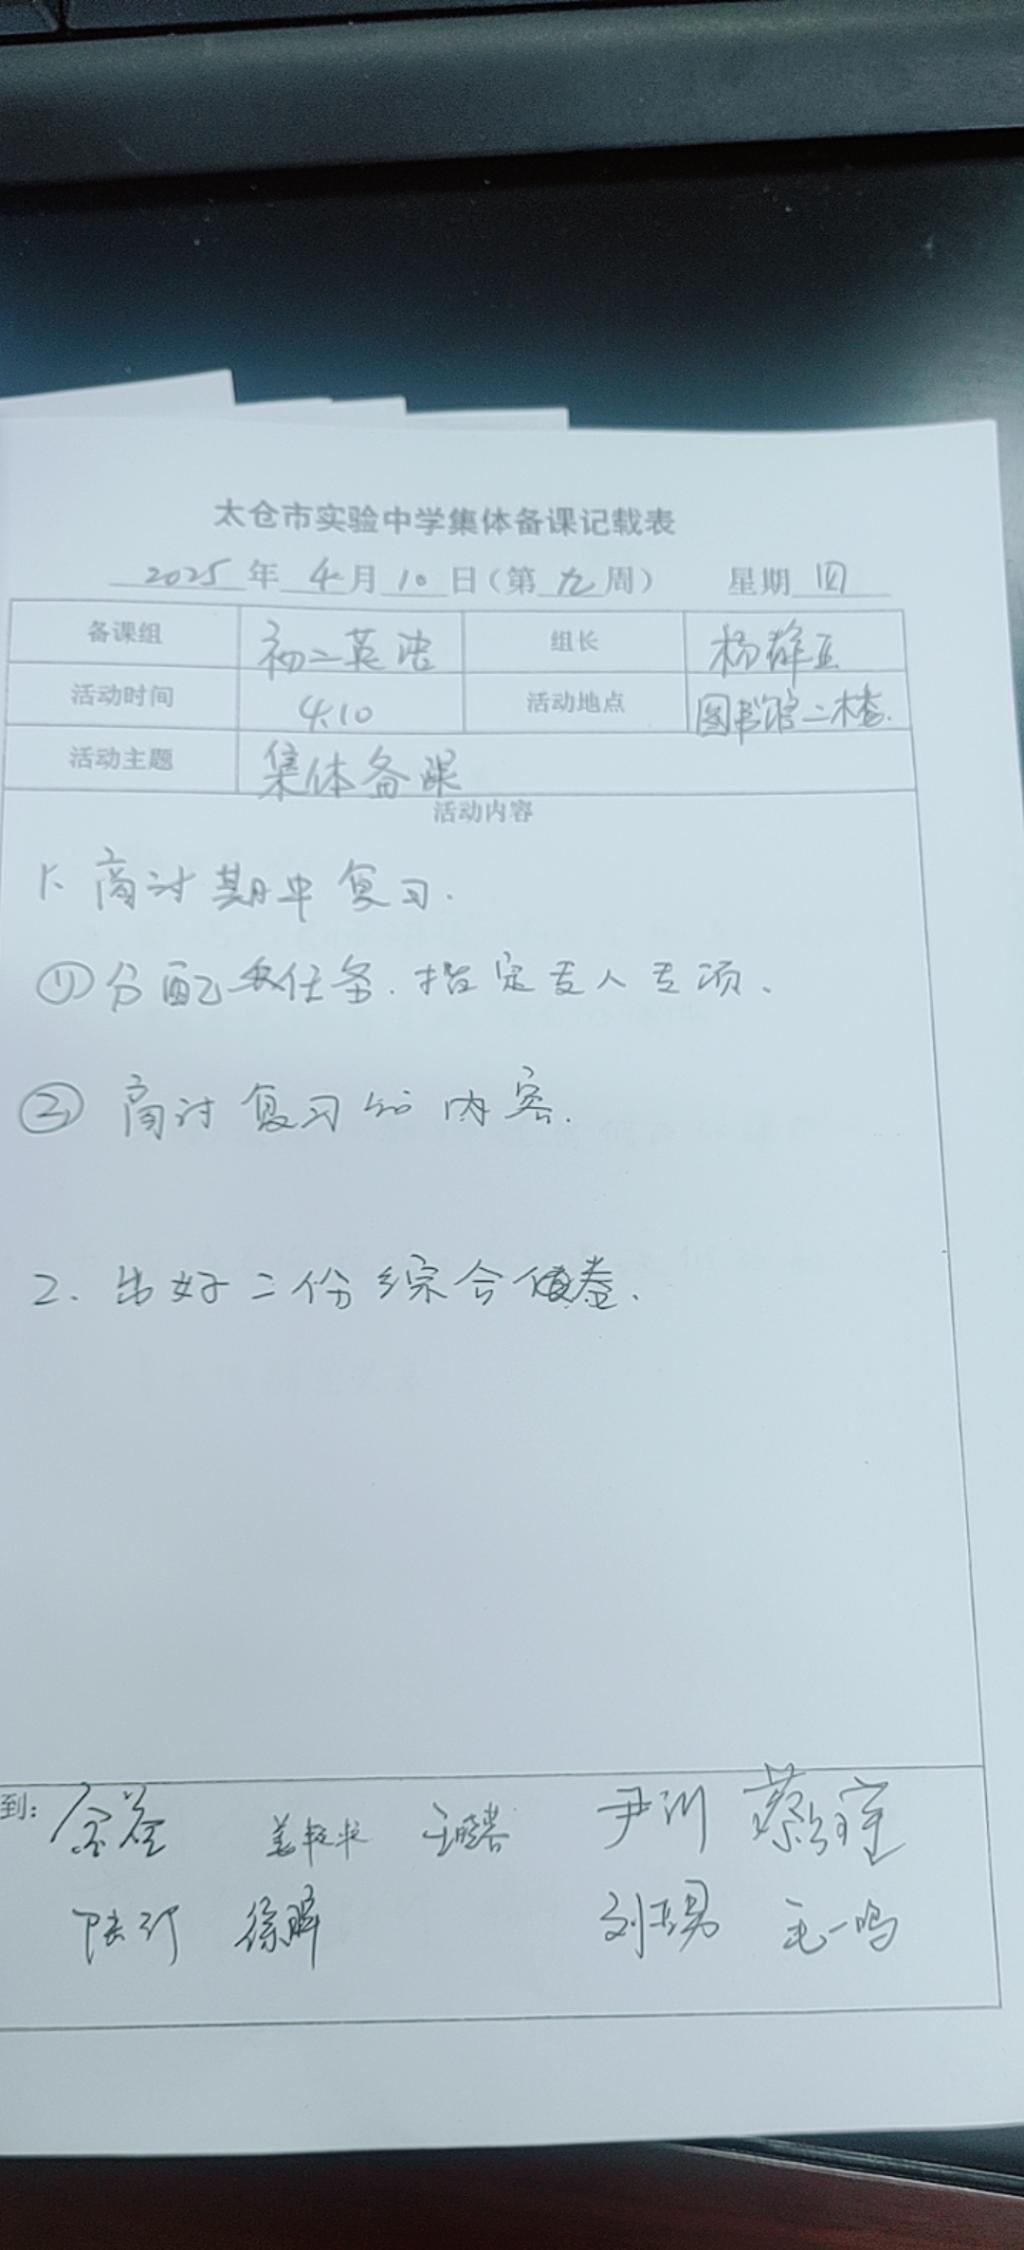 太仓市实验中学集体备课记载表
2025年4月10日(第九周) 星期四
备课组 初二英语 组长 杨群亚
活动时间 4.10 活动地点 图书馆二楼.
活动主题 集体备课
活动内容
1. 商讨期中复习.
①分配任务.指定专人专项.
② 商讨复习的内容.
2. 出好二份综合卷.
到: 尹川 蔡
徐晖 刘 毛一鸣